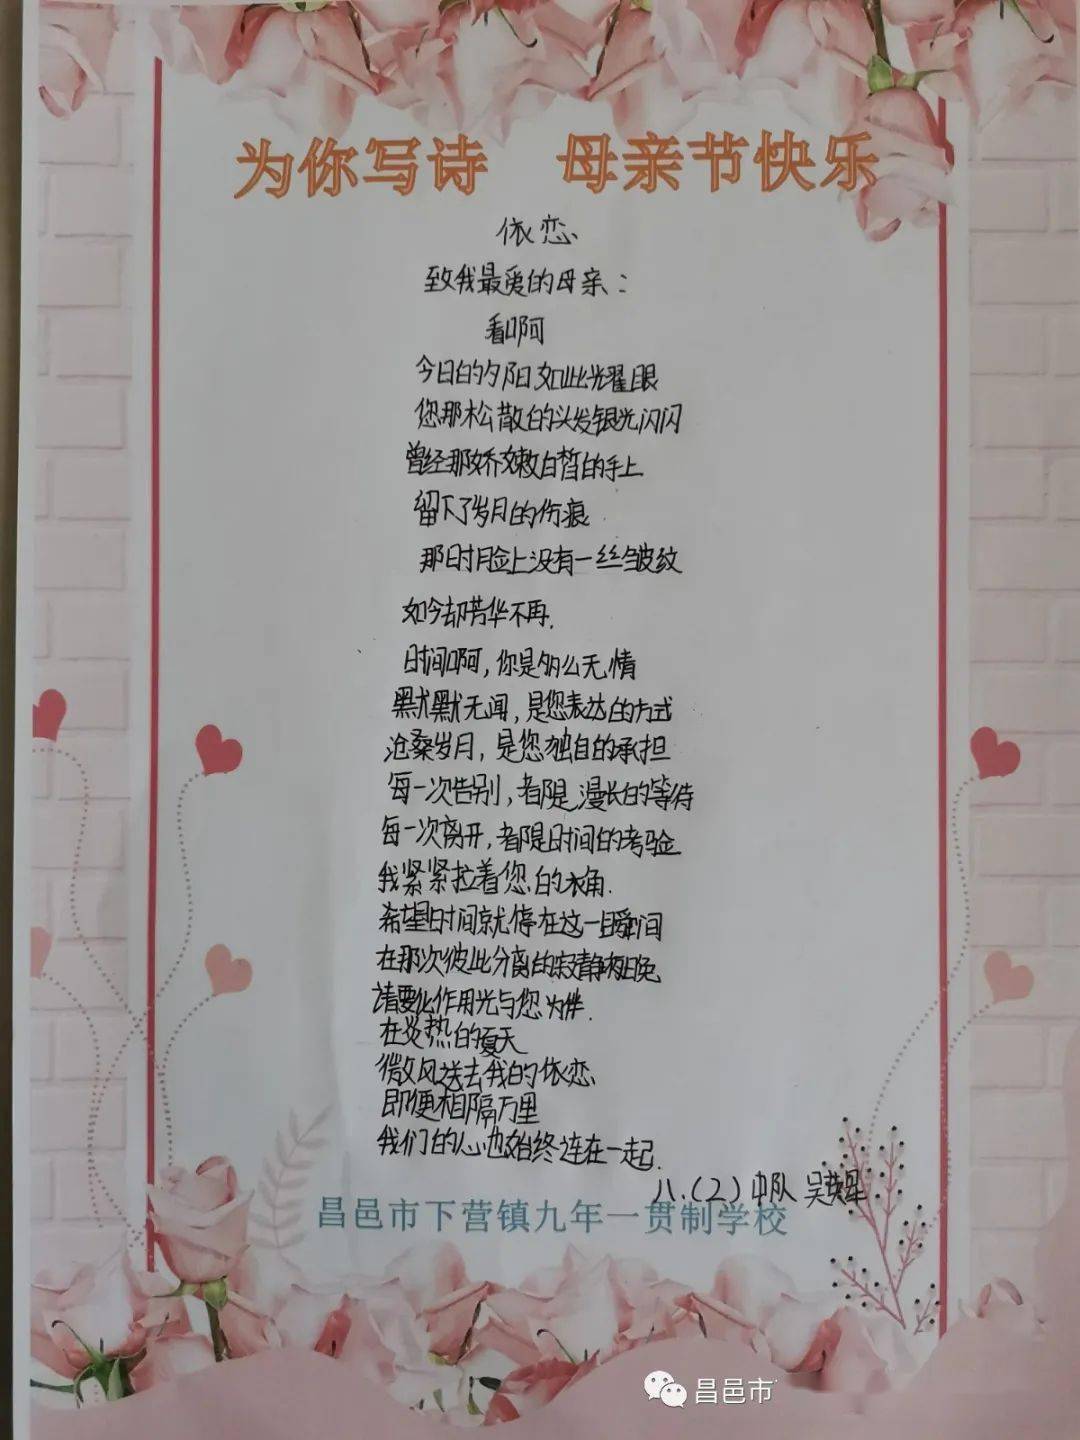 为你写诗 母亲节快乐
依恋
致我最爱的母亲：
看啊
今日的夕阳如此光耀眼
您那松散的头发银光闪闪
曾经那娇嫩白皙的手上
留下了岁月的伤痕
那时脸上没有一丝皱纹
如今却芳华不再.
时间啊,你是多么无情
默默无闻,是您表达的方式
沧桑岁月,是您独自的承担
每一次告别,都是漫长的等待
每一次离开,都是时间的考验
我紧紧拉着您的衣角.
希望时间就停在这一瞬间
在那次彼此分离的寂静夜晚
请要化作用光与您为伴.
在炎热的夏天
微风送去我的依恋
即便相隔万里
我们的心也始终连在一起.
八.(2)中队 吴英
昌邑市下营镇九年一贯制学校
昌邑市